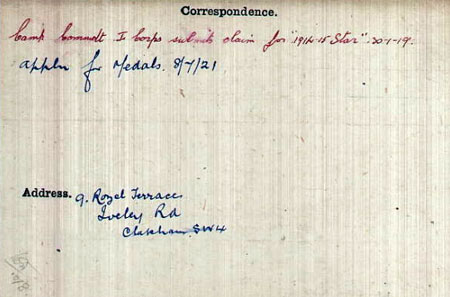 Correspondence.
Camp Commdt I Corps submits claim for "1914-15 Star" 30-1-19.
Appln for Medals. 8/7/21
Address. 9. Rozel Terrace
Iveley Rd
Clapham SW4